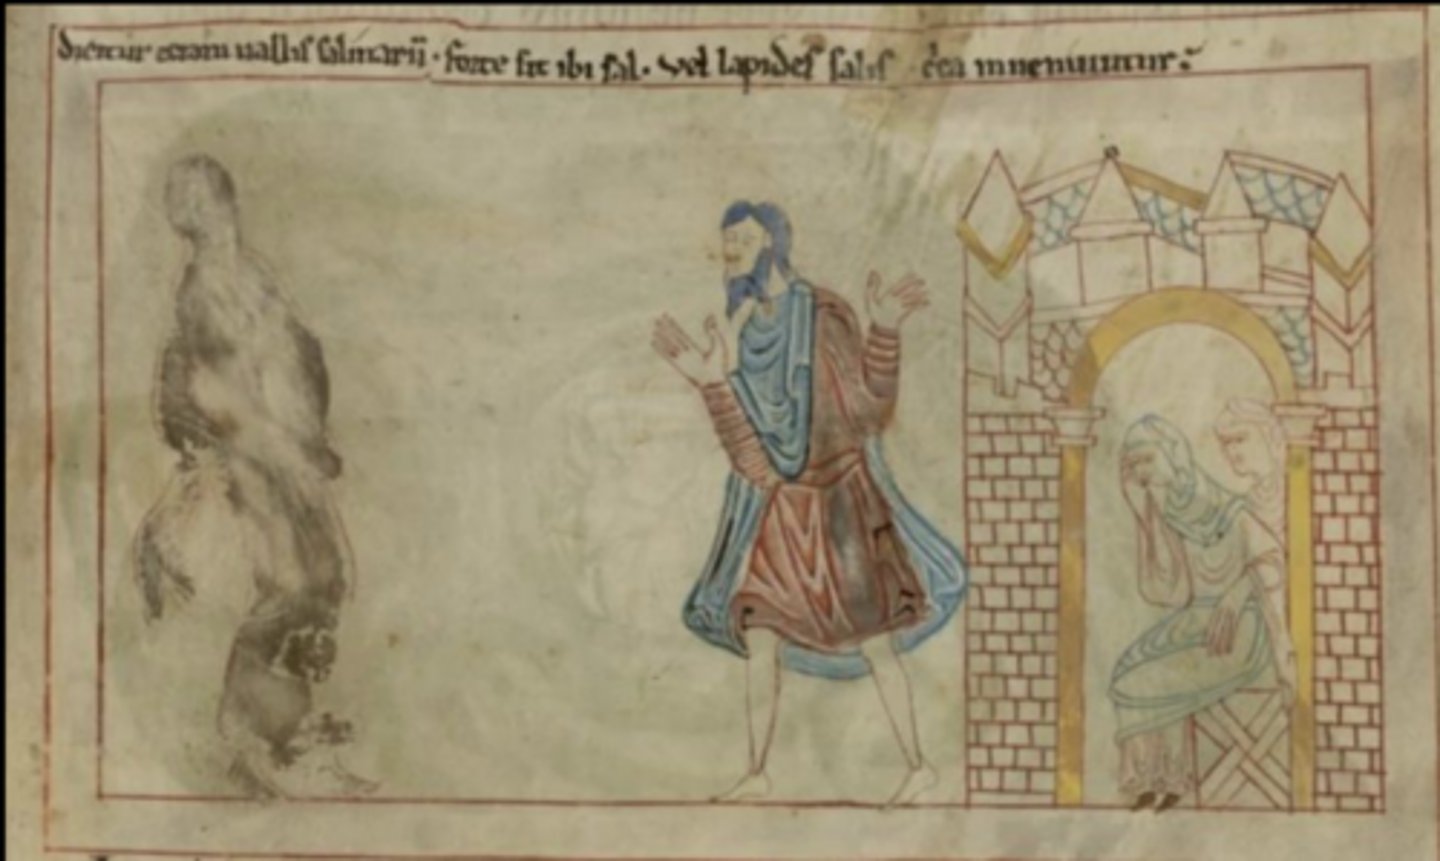 dicitur etiam uallis salinarū · forte fit ibi sal · vel lapides salis inueniuntur